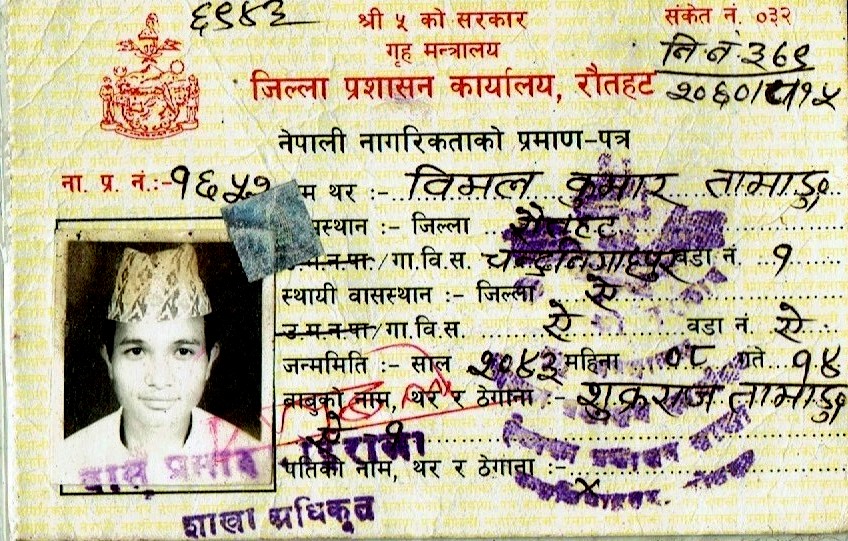 ६९४३ श्री ५ को सरकार संकेत नं. ०३२
गृह मन्त्रालय नि नं ३६९
जिल्ला प्रशासन कार्यालय, रौतहट २०६०
नेपाली नागरिकताको प्रमाण-पत्र
ना. प्र. नं.:- १६५७ म थर :- विमल कुमार तामाङ्ग
स्थान :- जिल्ला रौतहट
उ.म.न.पा./गा.वि.स. चन्द्रनिगाहपुर वडा नं. १
स्थायी वासस्थान :- जिल्ला ऐ
उ.म.न.पा./गा.वि.स. ऐ वडा नं. ऐ
जन्ममिति :- साल २०४३ महिना ०८ गते १४
बाबुको नाम, थर र ठेगाना :- शुक्रराज तामाङ्ग
ऐ १
पतिको नाम, थर र ठेगाना :- x
राम प्रसाद
शाखा अधिकृत